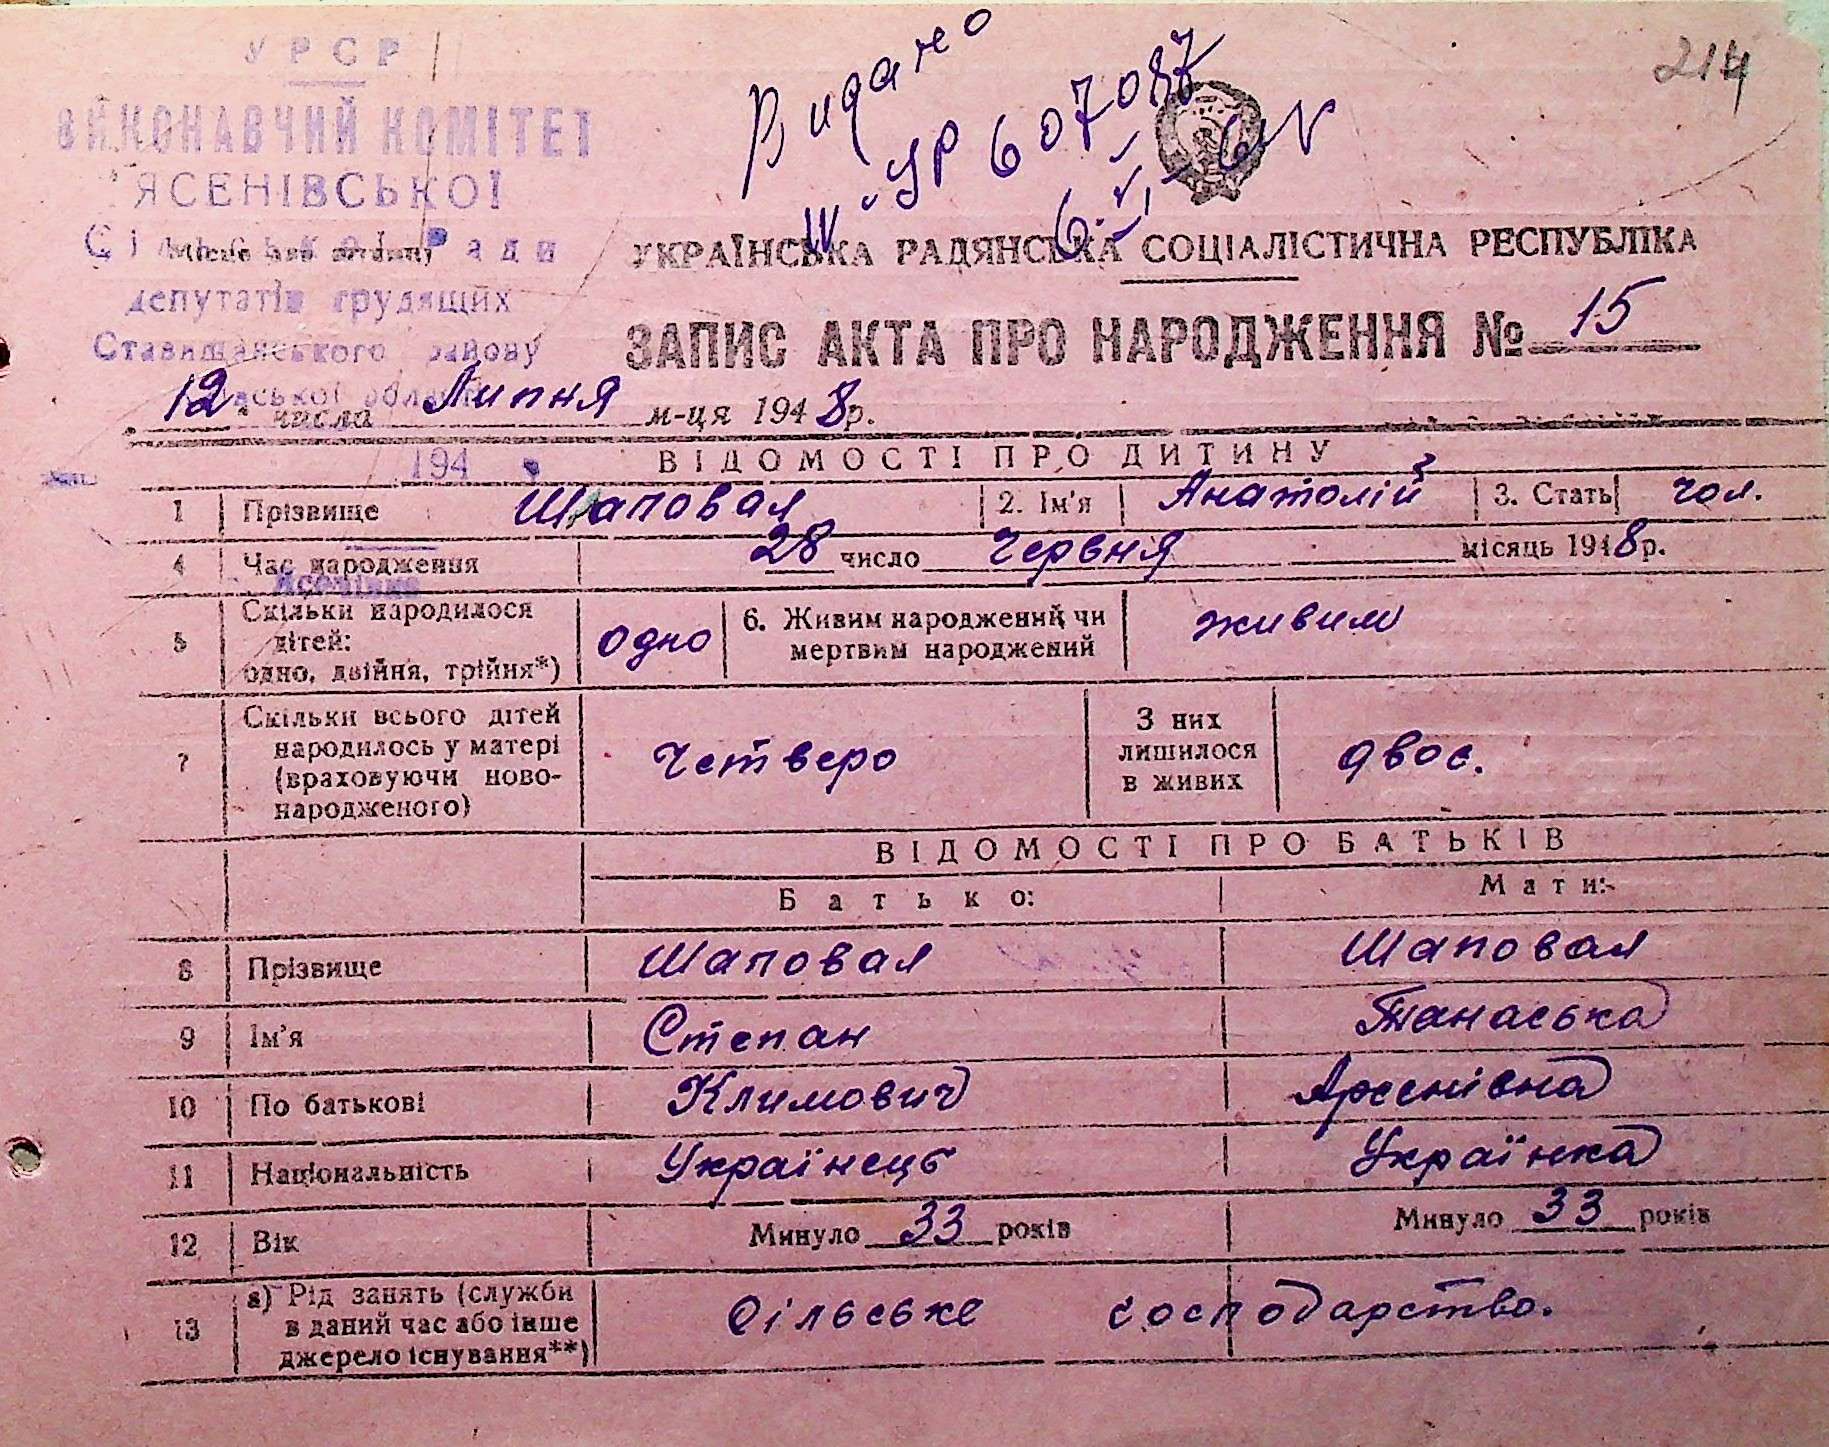 214
УРСР
ВИКОНАВЧИЙ КОМІТЕТ
ЯСЕНІВСЬКОЇ
Сільської Ради
депутатів трудящих
Ставищанського району
ської області
194
Видано
УР 607087
УКРАЇНСЬКА РАДЯНСЬКА СОЦІАЛІСТИЧНА РЕСПУБЛІКА
ЗАПИС АКТА ПРО НАРОДЖЕННЯ № 15
12 числа Липня м-ця 1948 р.
ВІДОМОСТІ ПРО ДИТИНУ
1 Прізвище Шаповал 2. Ім'я Анатолій 3. Стать чол.
4 Час народження 28 число Червня місяць 1948 р.
5 Скільки народилося дітей: одно, двійня, трійня*) одно 6. Живим народжений чи мертвим народжений живим
7 Скільки всього дітей народилось у матері (враховуючи ново-народженого) Четверо З них лишилося в живих двоє.
ВІДОМОСТІ ПРО БАТЬКІВ
Батько: Мати:
8 Прізвище Шаповал Шаповал
9 Ім'я Степан Танаська
10 По батькові Климович Арсенівна
11 Національність Українець Українка
12 Вік Минуло 33 років Минуло 33 років
13 а) Рід занять (служби в даний час або інше джерело існування**) Сільське господарство.